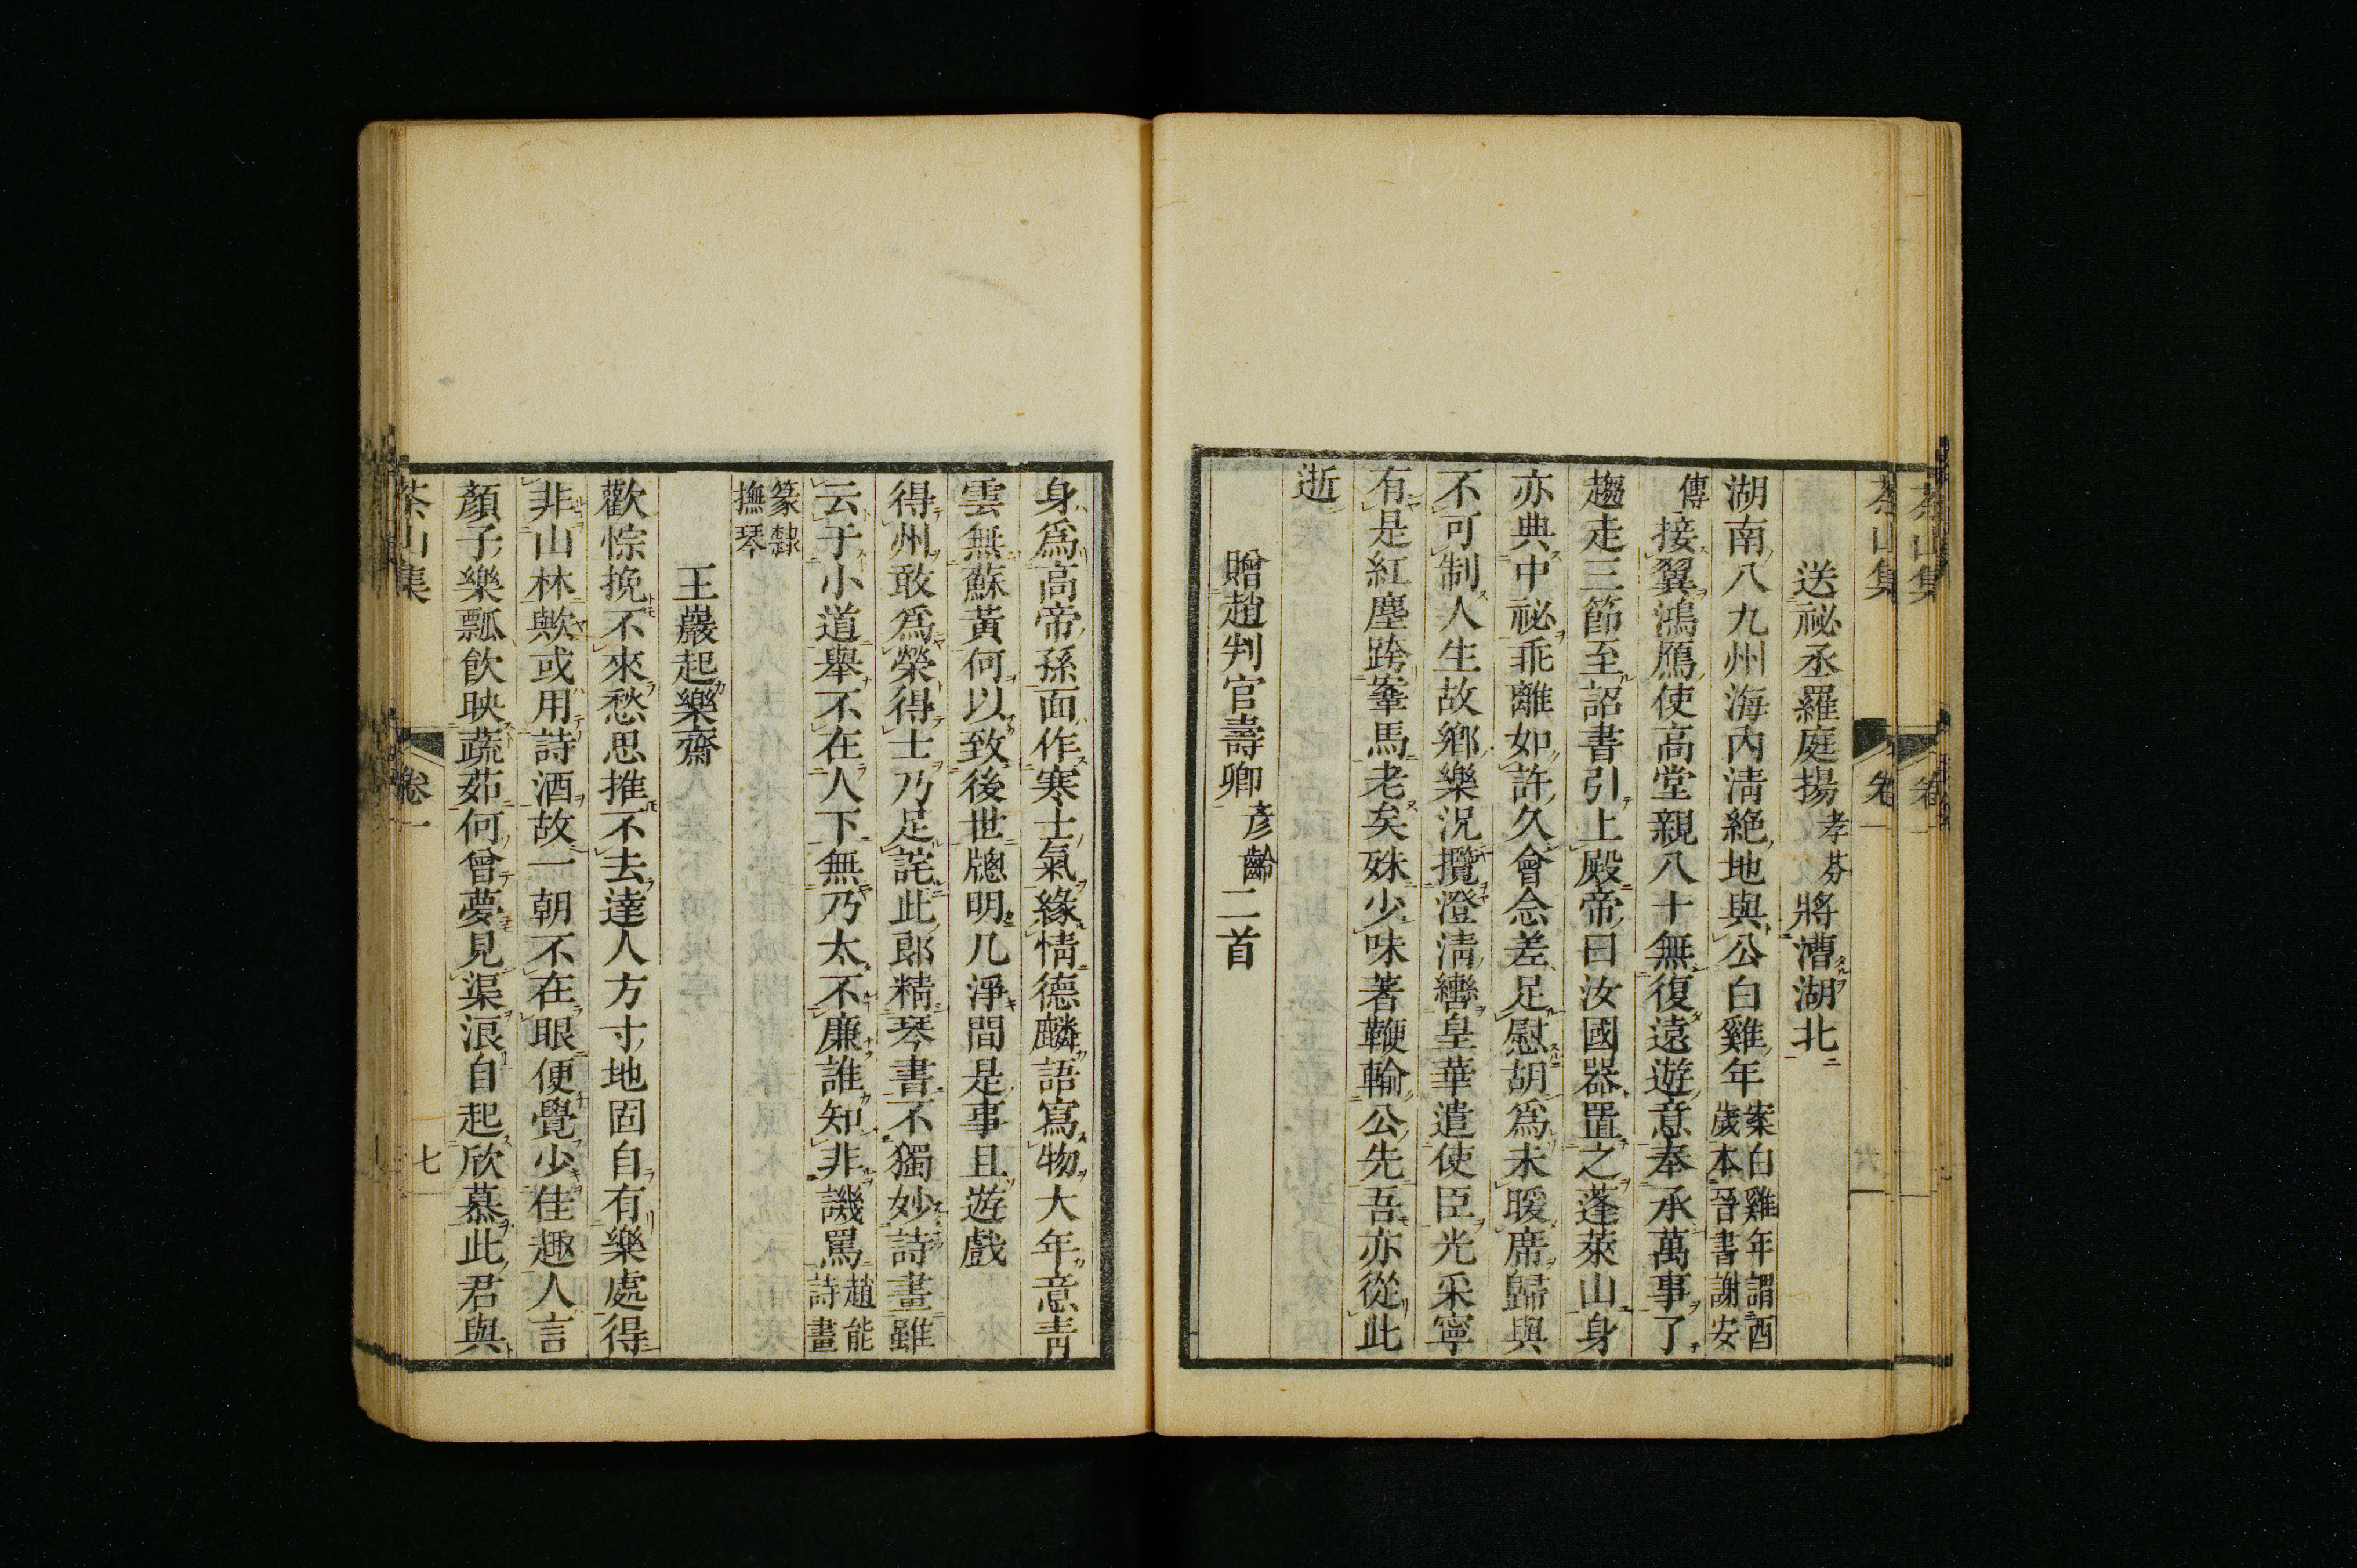 送祕丞羅庭揚孝芬將漕湖北
湖南八九州海内淸絶地與公白雞年案白雞年謂酉歲本晉書謝安
傳接翼鴻鴈使高堂親八十無復遠遊意奉承萬事了
趨走三節至詔書引上殿帝曰汝國器置之蓬萊山身
亦典中祕乖離如許久會合差足慰胡爲未暖席歸與
不可制人生故鄕樂況攬澄淸轡皇華遣使臣光采寧
有是紅塵跨羣馬老矣殊少味著鞭輸公先吾亦從此
逝
贈趙判官壽卿彥齡二首
身爲高帝孫面作寒士氣緣情德麟語寫物大年意靑
雲無蘇黃何以致後世牕明几淨間是事且遊戲
得州敢爲榮得士乃足詫此郞精琴書不獨妙詩畫雖
云于小道舉不在人下無乃太不廉誰知非譏罵趙能詩畫
篆隸撫琴
王巖起樂齋
歡悰挽不來愁思推不去達人方寸地固自有樂處得
非山林歟或用詩酒故一朝不在眼便覺少佳趣人言
顏子樂瓢飮映蔬茹何曾夢見渠浪自起欣慕此君與
茶山集
卷一
七